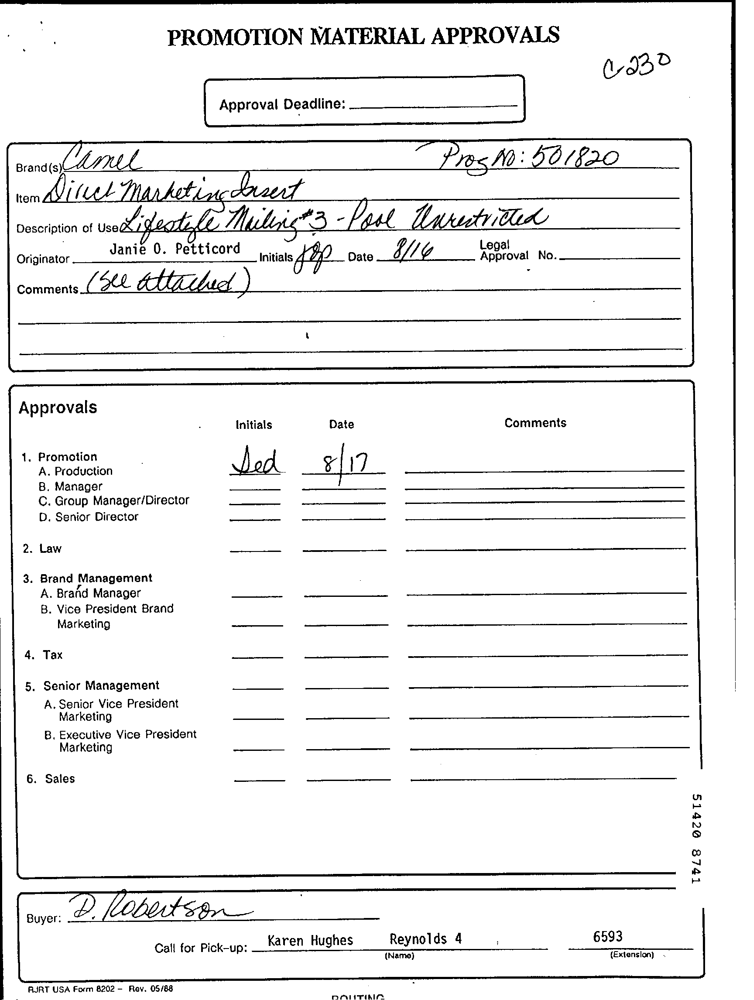 PROMOTION MATERIAL APPROVALS
C-230
Approval Deadline:
Brand(s) Camel Prog NO: 501820
Item Direct Marketing Insert
Description of Use Lifestyle Mailing #3 - Pool Unrestricted
Originator Janie O. Petticord Initials jop Date 8/16 Legal Approval No.
Comments (See attached)
Approvals
Initials Date Comments
1. Promotion
A. Production 8/17
B. Manager
C. Group Manager/Director
D. Senior Director
2. Law
3. Brand Management
A. Brand Manager
B. Vice President Brand
Marketing
4. Tax
5. Senior Management
A. Senior Vice President
Marketing
B. Executive Vice President
Marketing
6. Sales
51420 8741
Buyer: D. Robertson
Call for Pick-up: Karen Hughes Reynolds 4 6593
(Name) (Extension)
RJRT USA Form 8202 - Rev. 05/88
ROUTING